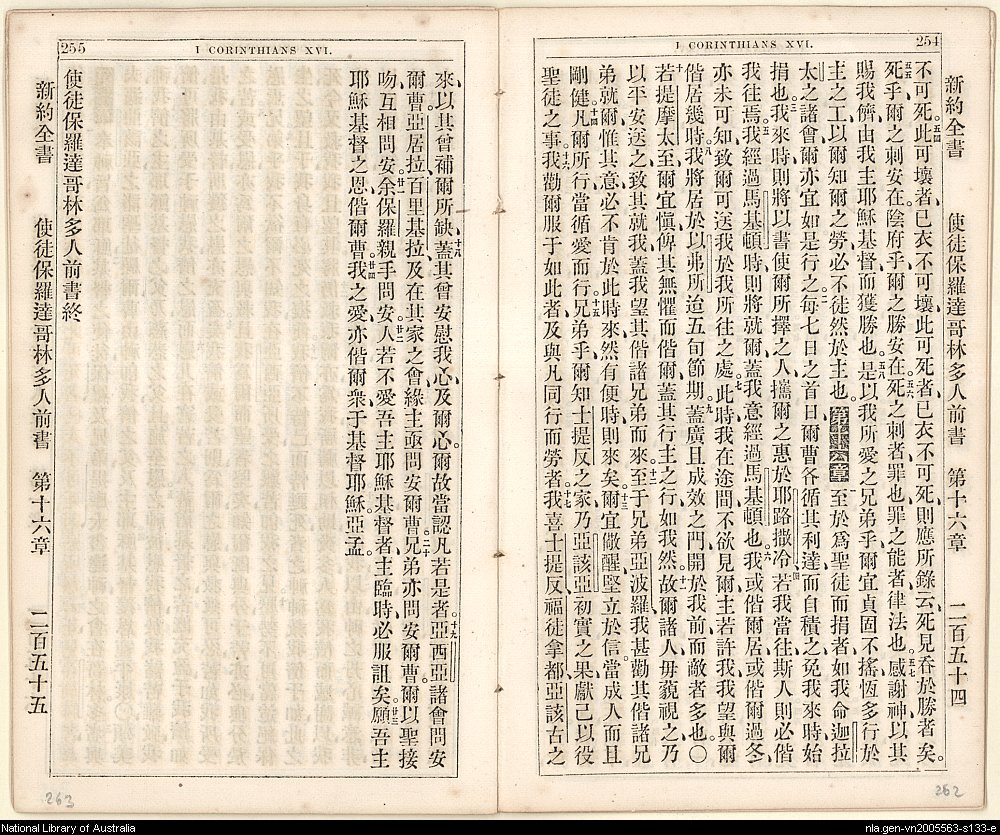 254
I CORINTHIANS XVI.
新約全書 使徒保羅達哥林多人前書 第十六章 二百五十四
不可死、此可壞者、已衣不可壞、此可死者、已衣不可死、則應所錄云、死見吞於勝者矣。
死乎、爾之刺安在、陰府乎、爾之勝安在、死之刺者罪也、罪之能者、律法也。感謝神以其
賜我儕由我主耶穌基督而獲勝也。是以我所愛之兄弟乎、爾宜貞固不搖、恆多行於
主之工、以爾知爾之勞、必不徒然於主也。第十六章 至於爲聖徒而捐者、如我命迦拉
太之諸會、爾亦宜如是行之。每七日之首日、爾曹各循其利達而自積之、免我來時始
捐也。我來時、則將以書使爾所擇之人、攜爾之惠於耶路撒冷、若我當往、斯人則必偕
我往焉。我經過馬基頓時、則將就爾、蓋我意經過馬基頓也。我或偕爾居、或偕爾過冬、
亦未可知、致爾可送我於我所往之處。此時我在途間不欲見爾、主若許我、我望與爾
偕居幾時。我將居於以弗所、迨五旬節期。蓋廣且成效之門、開於我前、而敵者多也。○
若提摩太至、爾宜慎、俾其無懼而偕爾、蓋其行主之行、如我然。故爾諸人毋藐視之、乃
以平安送之、致其就我、蓋我望其偕諸兄弟而來。至于兄弟亞波羅、我甚勸其偕諸兄
弟就爾、惟其意必不肯於此時來、然有便時則來矣。爾宜儆醒、堅立於信、當成人而且
剛健。凡爾所行、當循愛而行。兄弟乎、爾知士提反之家、乃亞該亞初實之果、獻己以役
聖徒之事。我勸爾服于如此者、及與凡同行而勞者。我喜士提反、福徒拿都、亞該古之
255
I CORINTHIANS XVI.
來、以其曾補爾所缺。蓋其曾安慰我心、及爾心、爾故當認凡若是者。亞西亞諸會問安
爾曹、亞居拉、百里基拉、及在其家之會、緣主亟問安爾曹。兄弟亦問安爾曹、爾以聖接
吻、互相問安。余保羅親手問安。人若不愛吾主耶穌基督者、主臨時必服詛矣。願吾主
耶穌基督之恩、偕爾曹。我之愛、亦偕爾衆于基督耶穌。亞孟。
使徒保羅達哥林多人前書終
新約全書 使徒保羅達哥林多人前書 第十六章 二百五十五
263
262
National Library of Australia
nla.gen-vn2005563-s133-e